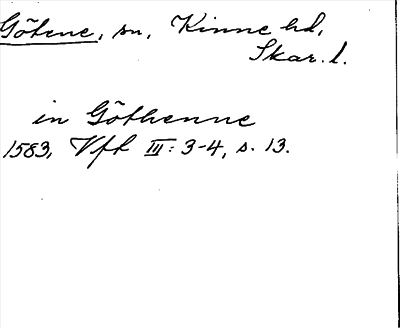 Götene, sn, Kinne hd,
Skar. l.
in Göthenne
1583, Vfk III: 3-4, s. 13.